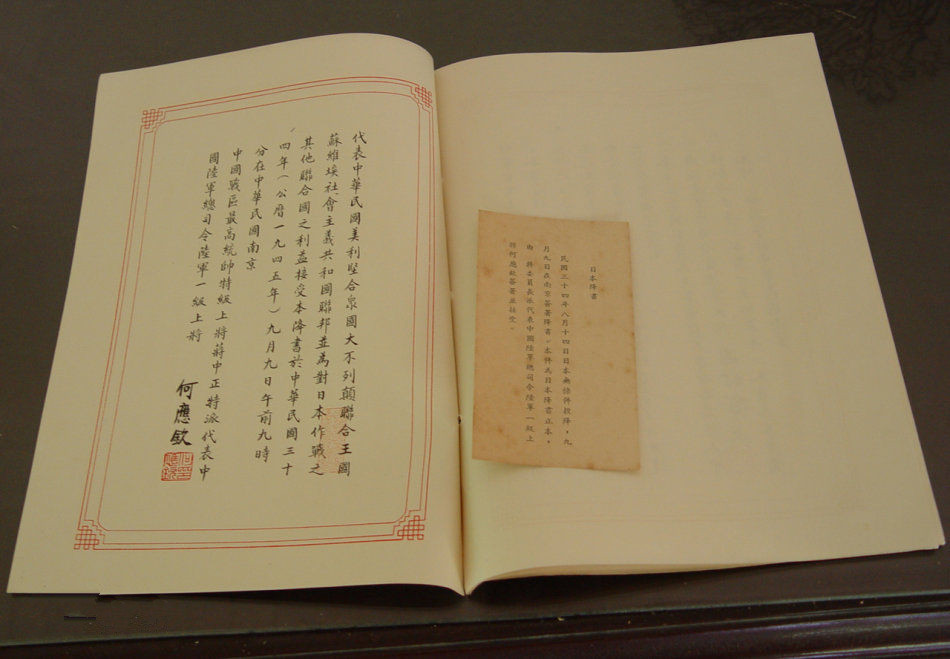 代表中華民國美利堅合眾國大不列顛聯合王國
蘇維埃社會主義共和國聯邦並為對日本作戰之
其他聯合國之利益接受本降書於中華民國三十
四年(公曆一九四五年)九月九日午前九時
分在中華民國南京
中國戰區最高統帥特級上將蔣中正特派代表中
國陸軍總司令陸軍一級上將
何應欽
日本降書
民國三十四年八月十四日日本無條件投降,九
月九日在南京簽署降書。本件為日本降書正本,
由 蔣委員長派代表中國陸軍總司令陸軍一級上
將何應欽簽署並接受。